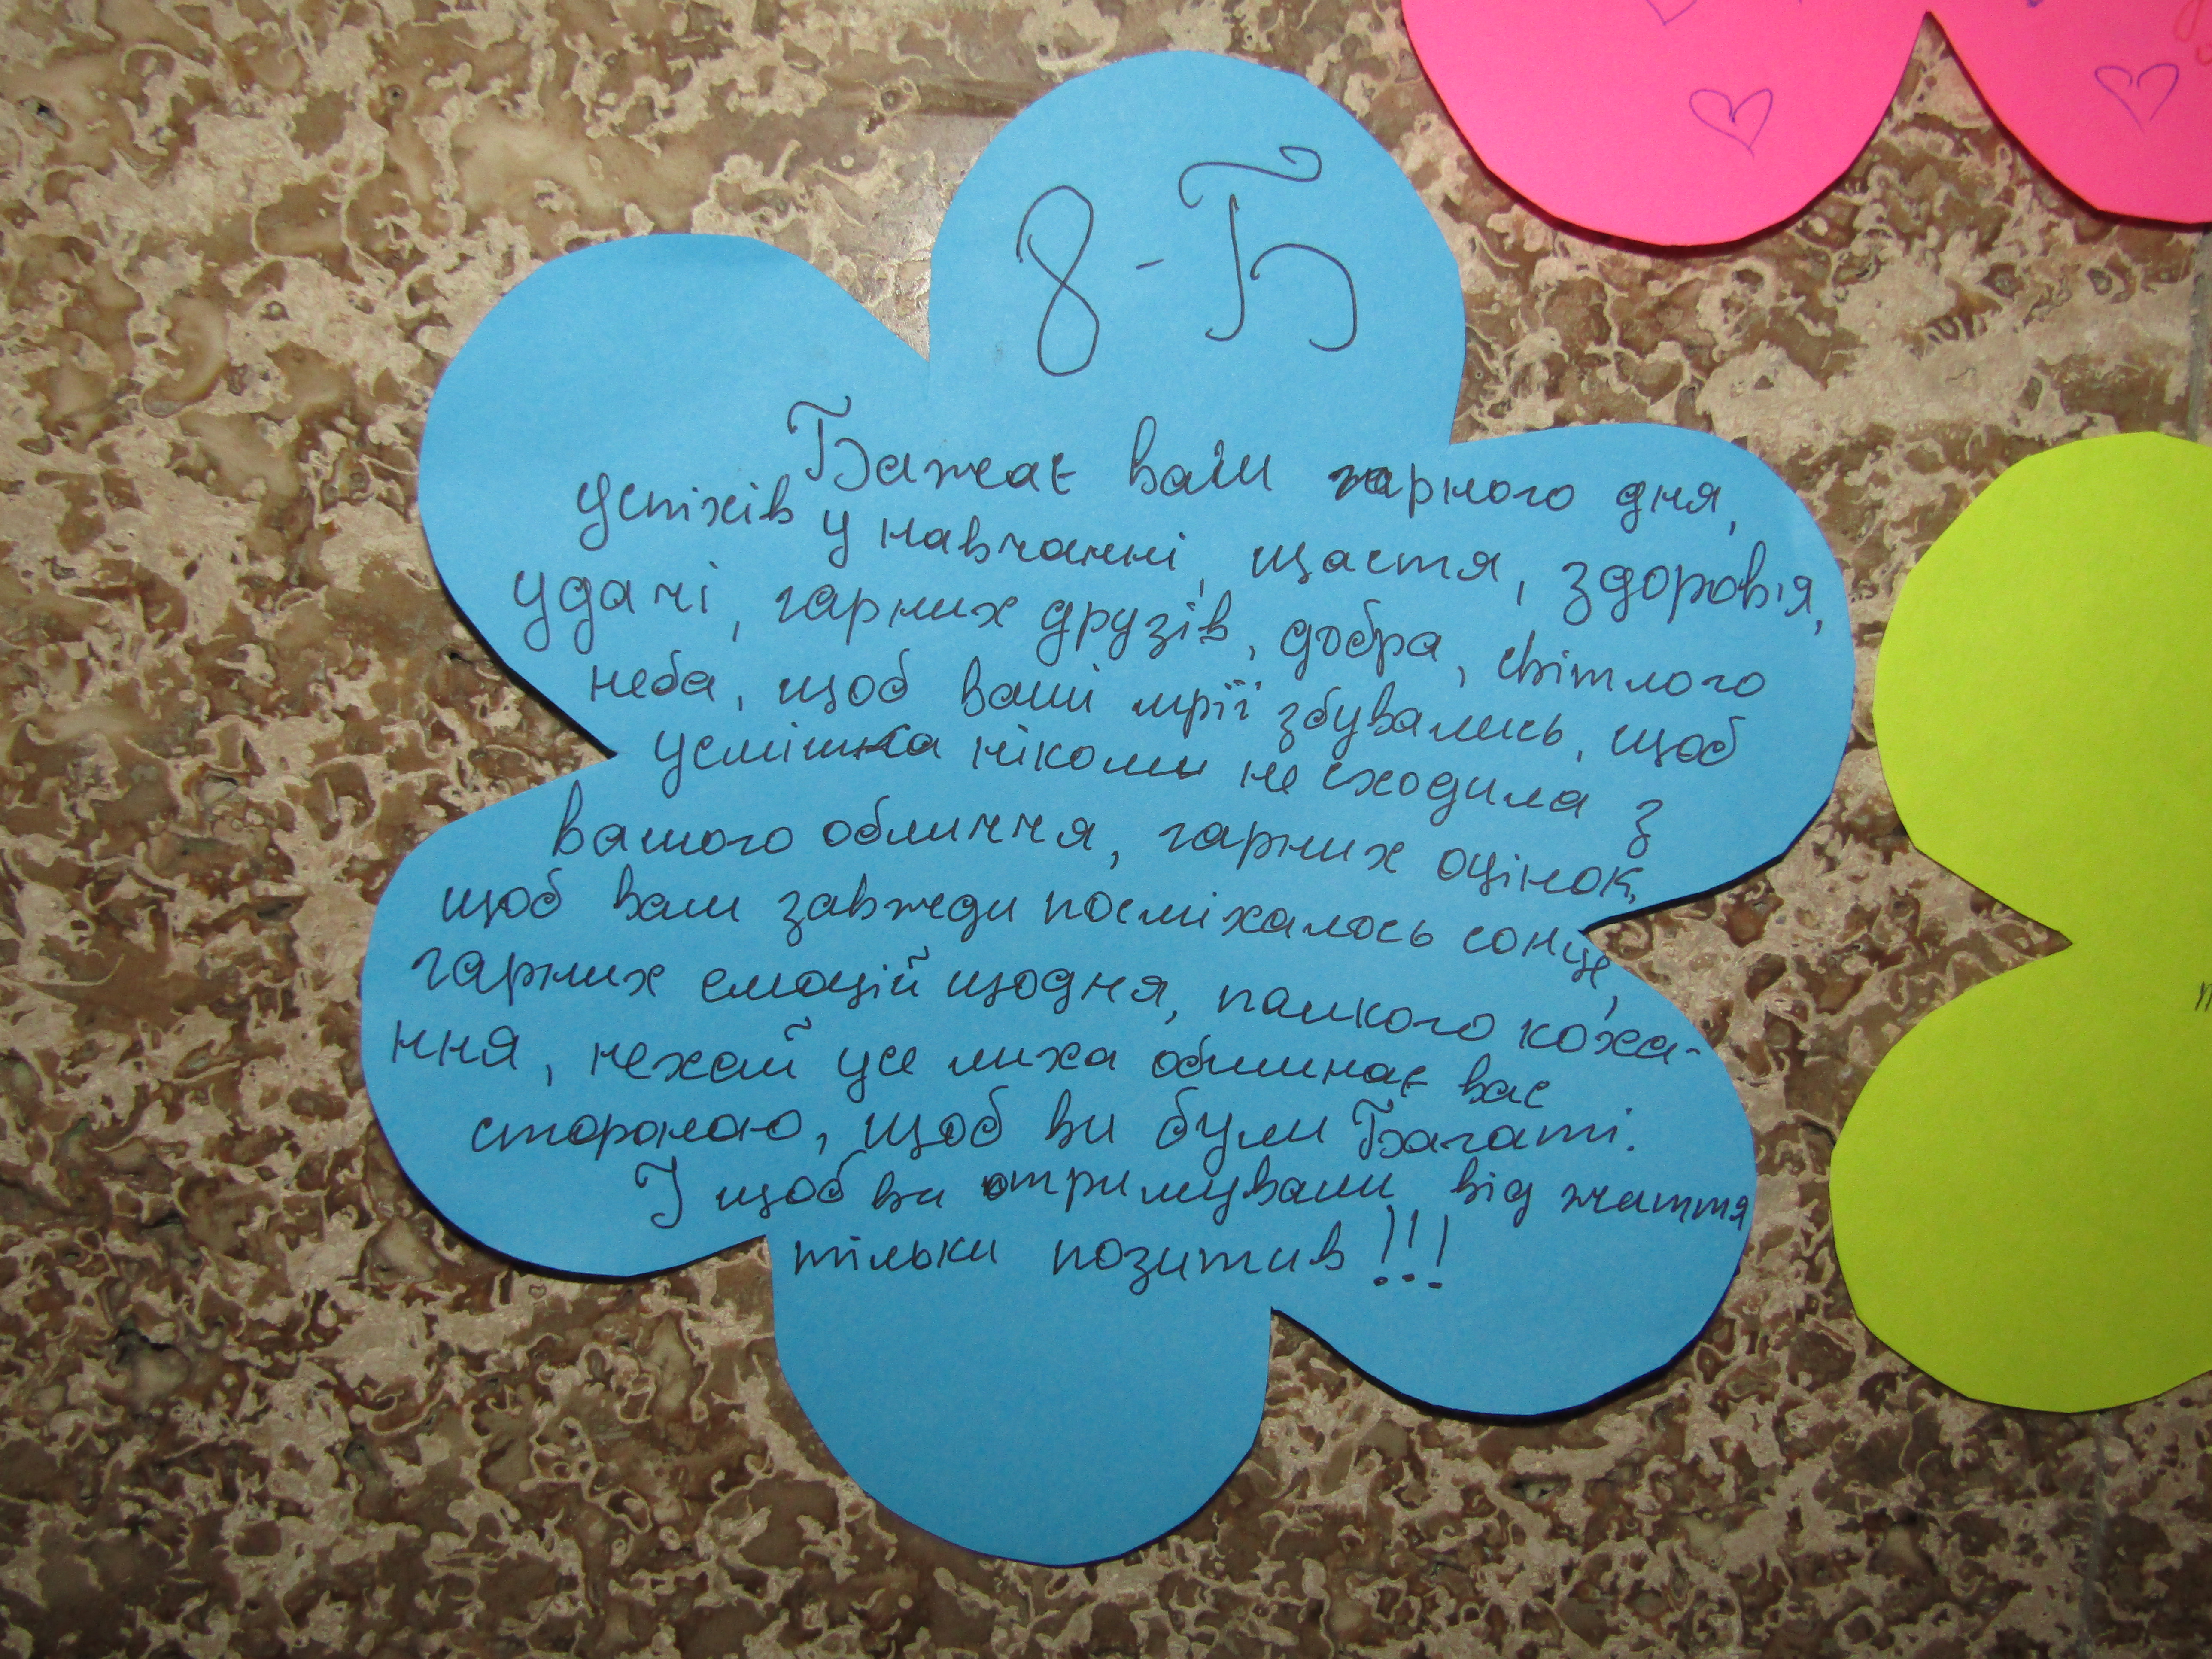 8-Б
Бажає вам гарного дня,
успіхів у навчанні, щастя, здоровія,
удачі, гарних друзів, добра, світлого
неба, щоб ваші мрії збувались, щоб
усмішка ніколи не сходила з
вашого обличчя, гарних оцінок,
щоб вам завжди посміхалось сонце,
гарних емоцій щодня, палкого коха-
ння, нехай усе лиха обминає вас
стороною, щоб ви були Багаті.
І щоб ви отримували від життя
тільки позитив!!!